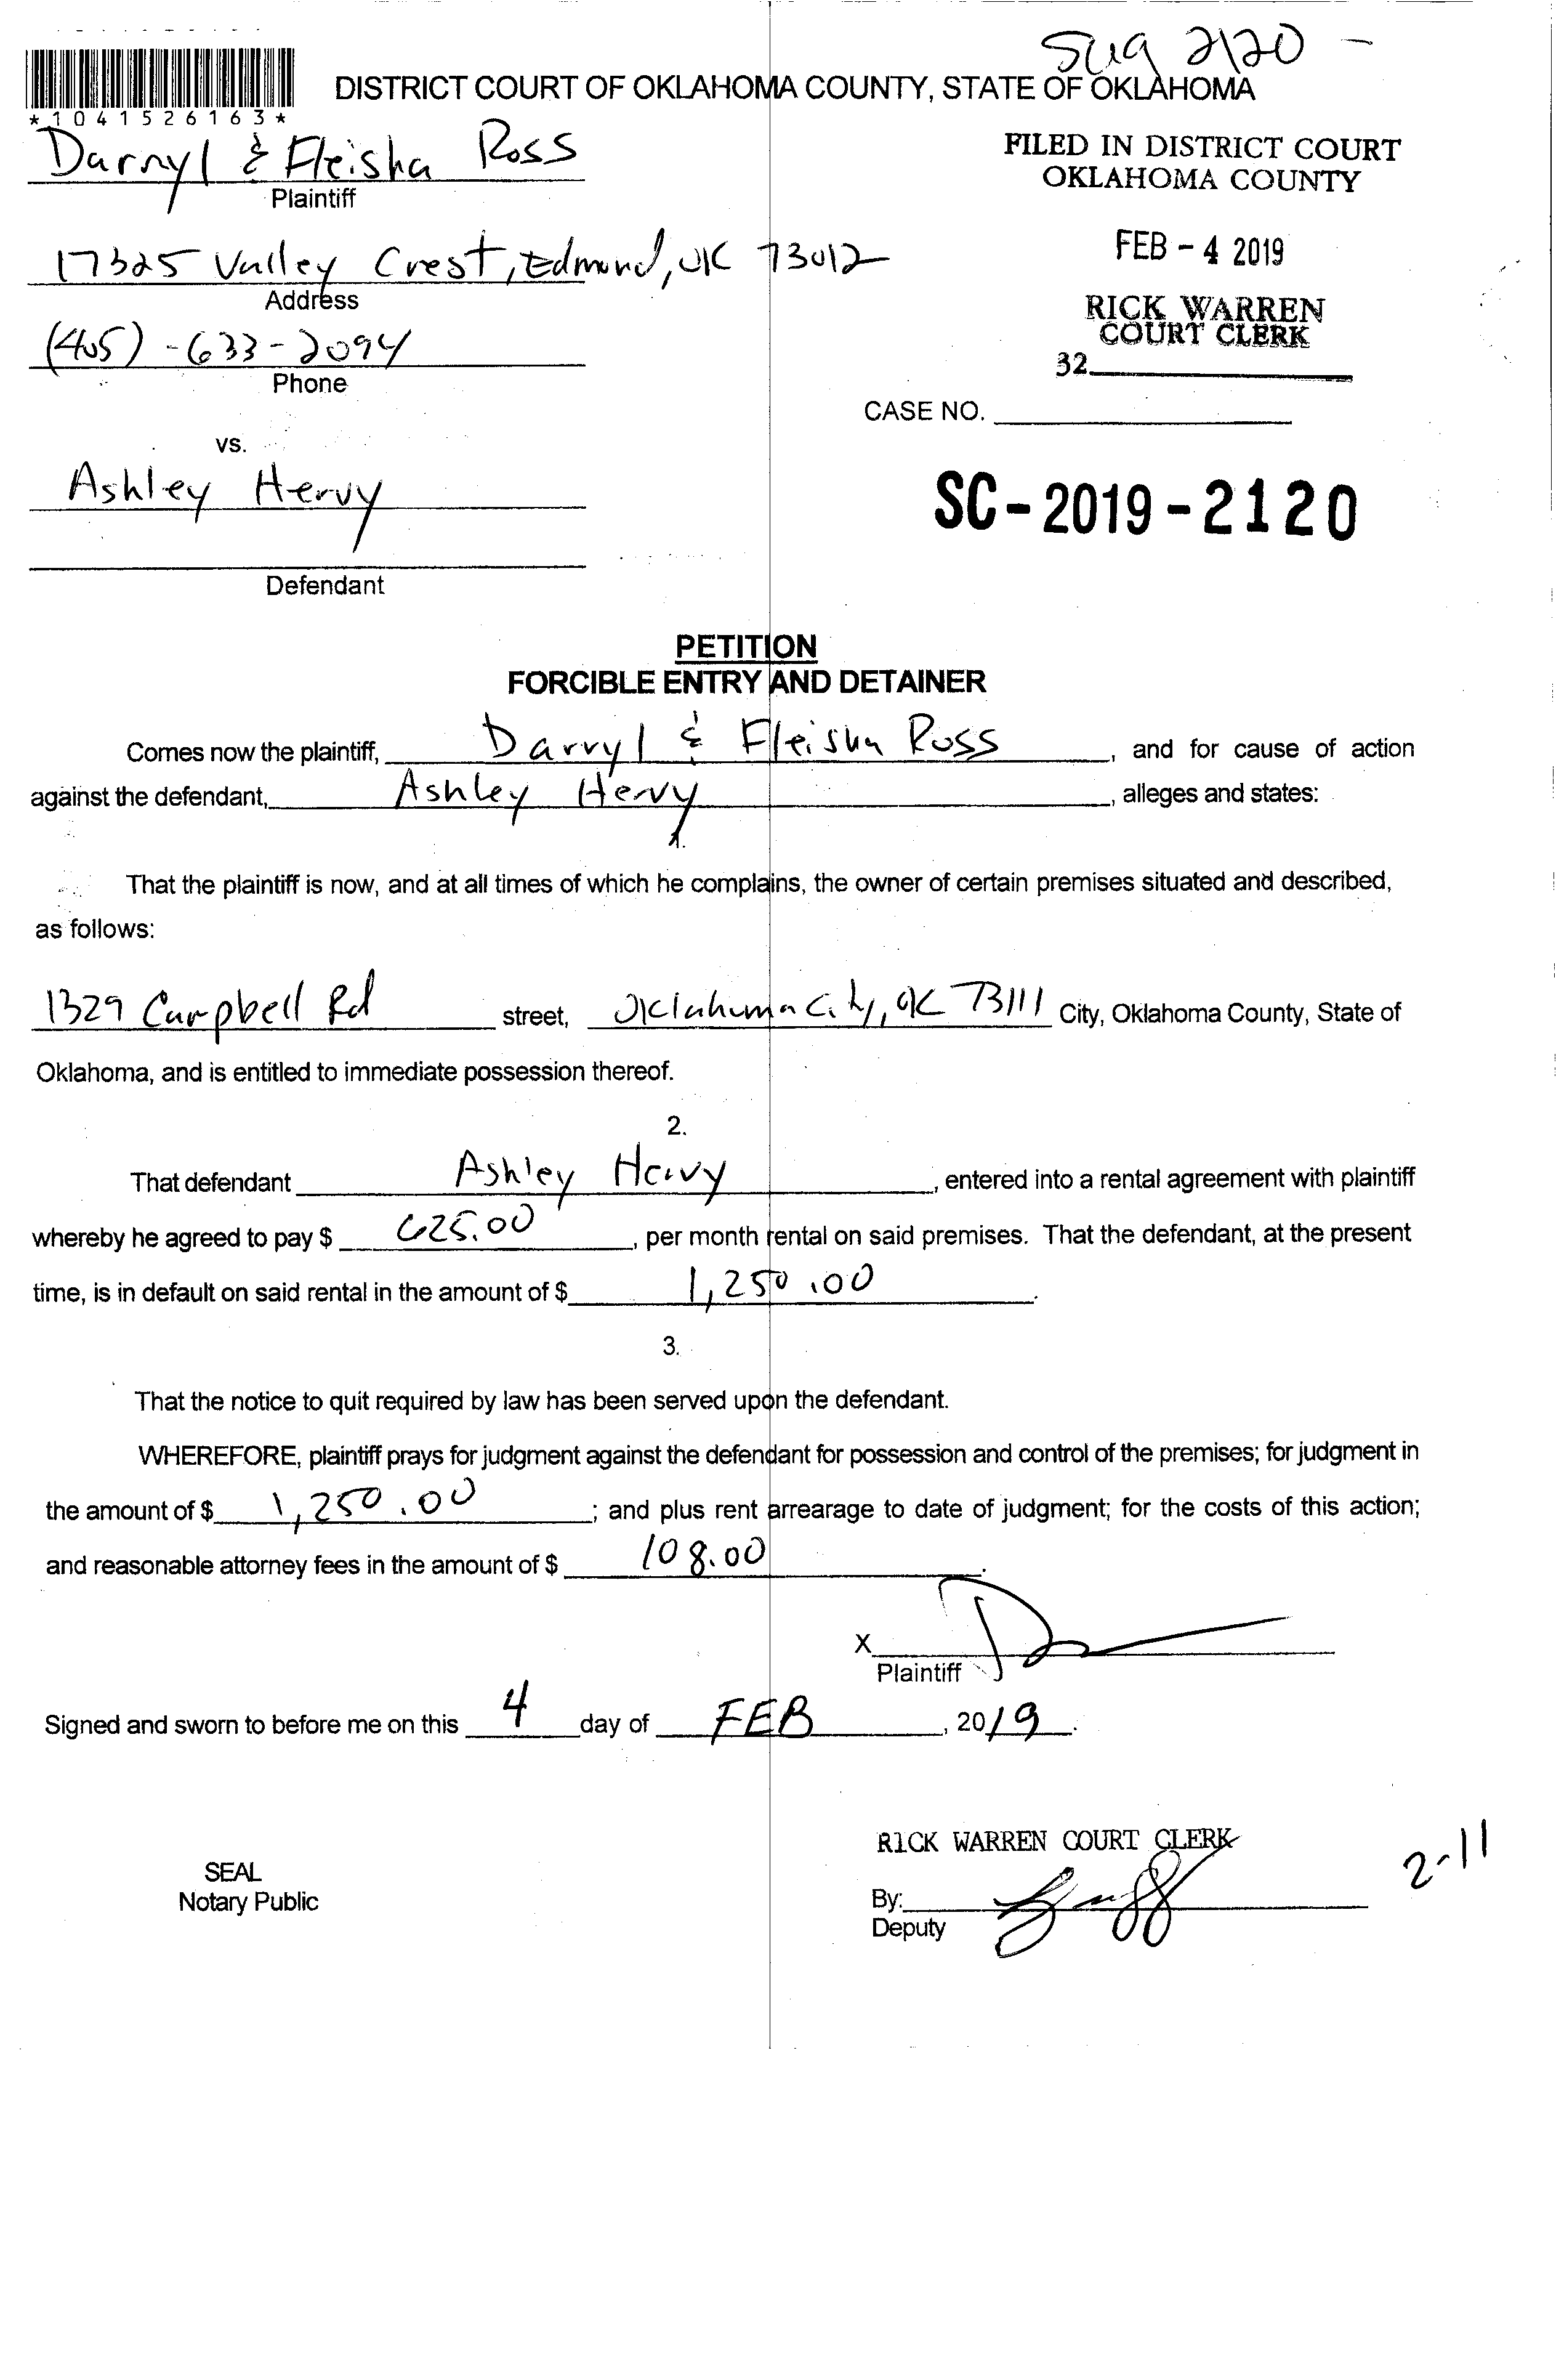 DISTRICT COURT OF OKLAHOMA COUNTY, STATE OF OKLAHOMA
*1041526163*
Darryl & Fleisha Ross
Plaintiff
FILED IN DISTRICT COURT
OKLAHOMA COUNTY
17325 Valley Crest, Edmond, OK 73012
Address
FEB - 4 2019
(405) - 633 - 2094
Phone
RICK WARREN
COURT CLERK
32
CASE NO.
vs.
Ashley Hervy
SC - 2019 - 2120
Defendant
PETITION
FORCIBLE ENTRY AND DETAINER
Comes now the plaintiff, Darryl & Fleisha Ross, and for cause of action
against the defendant, Ashley Hervy, alleges and states:
1.
That the plaintiff is now, and at all times of which he complains, the owner of certain premises situated and described,
as follows:
1329 Campbell Rd street, Oklahoma City, OK 73111 City, Oklahoma County, State of
Oklahoma, and is entitled to immediate possession thereof.
2.
That defendant Ashley Hervy, entered into a rental agreement with plaintiff
whereby he agreed to pay $ 625.00, per month rental on said premises. That the defendant, at the present
time, is in default on said rental in the amount of $ 1,250.00.
3.
That the notice to quit required by law has been served upon the defendant.
WHEREFORE, plaintiff prays for judgment against the defendant for possession and control of the premises; for judgment in
the amount of $ 1,250.00; and plus rent arrearage to date of judgment; for the costs of this action;
and reasonable attorney fees in the amount of $ 108.00.
X
Plaintiff
Signed and sworn to before me on this 4 day of FEB, 2019.
RICK WARREN COURT CLERK
2-11
SEAL
Notary Public
By:
Deputy